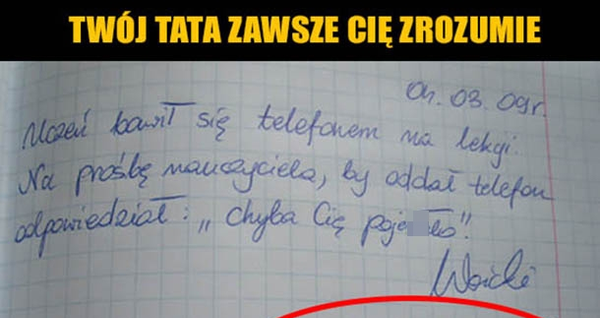 TWÓJ TATA ZAWSZE CIĘ ZROZUMIE
04.03.09r.
Uczeń bawił się telefonem na lekcji.
Na prośbę nauczyciela, by oddał telefon
odpowiedział: „chyba Cię poje**ło".